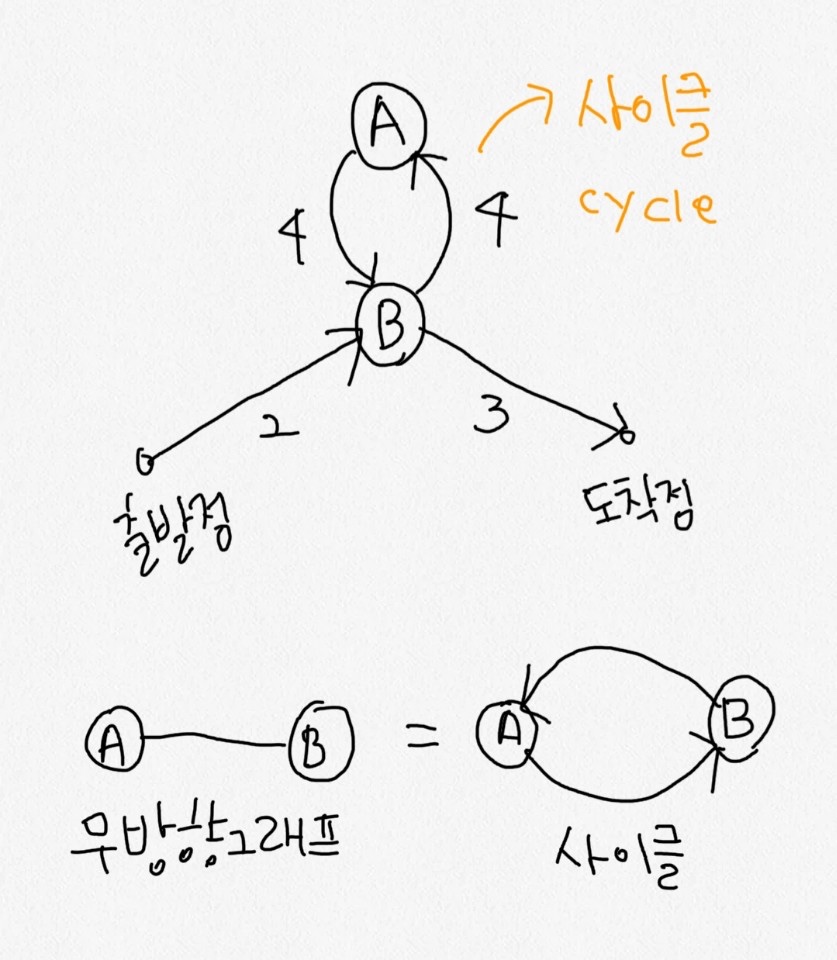 A
사이클
cycle
4
4
B
2
3
출발점
도착점
A
B
=
A
B
무방향그래프
사이클